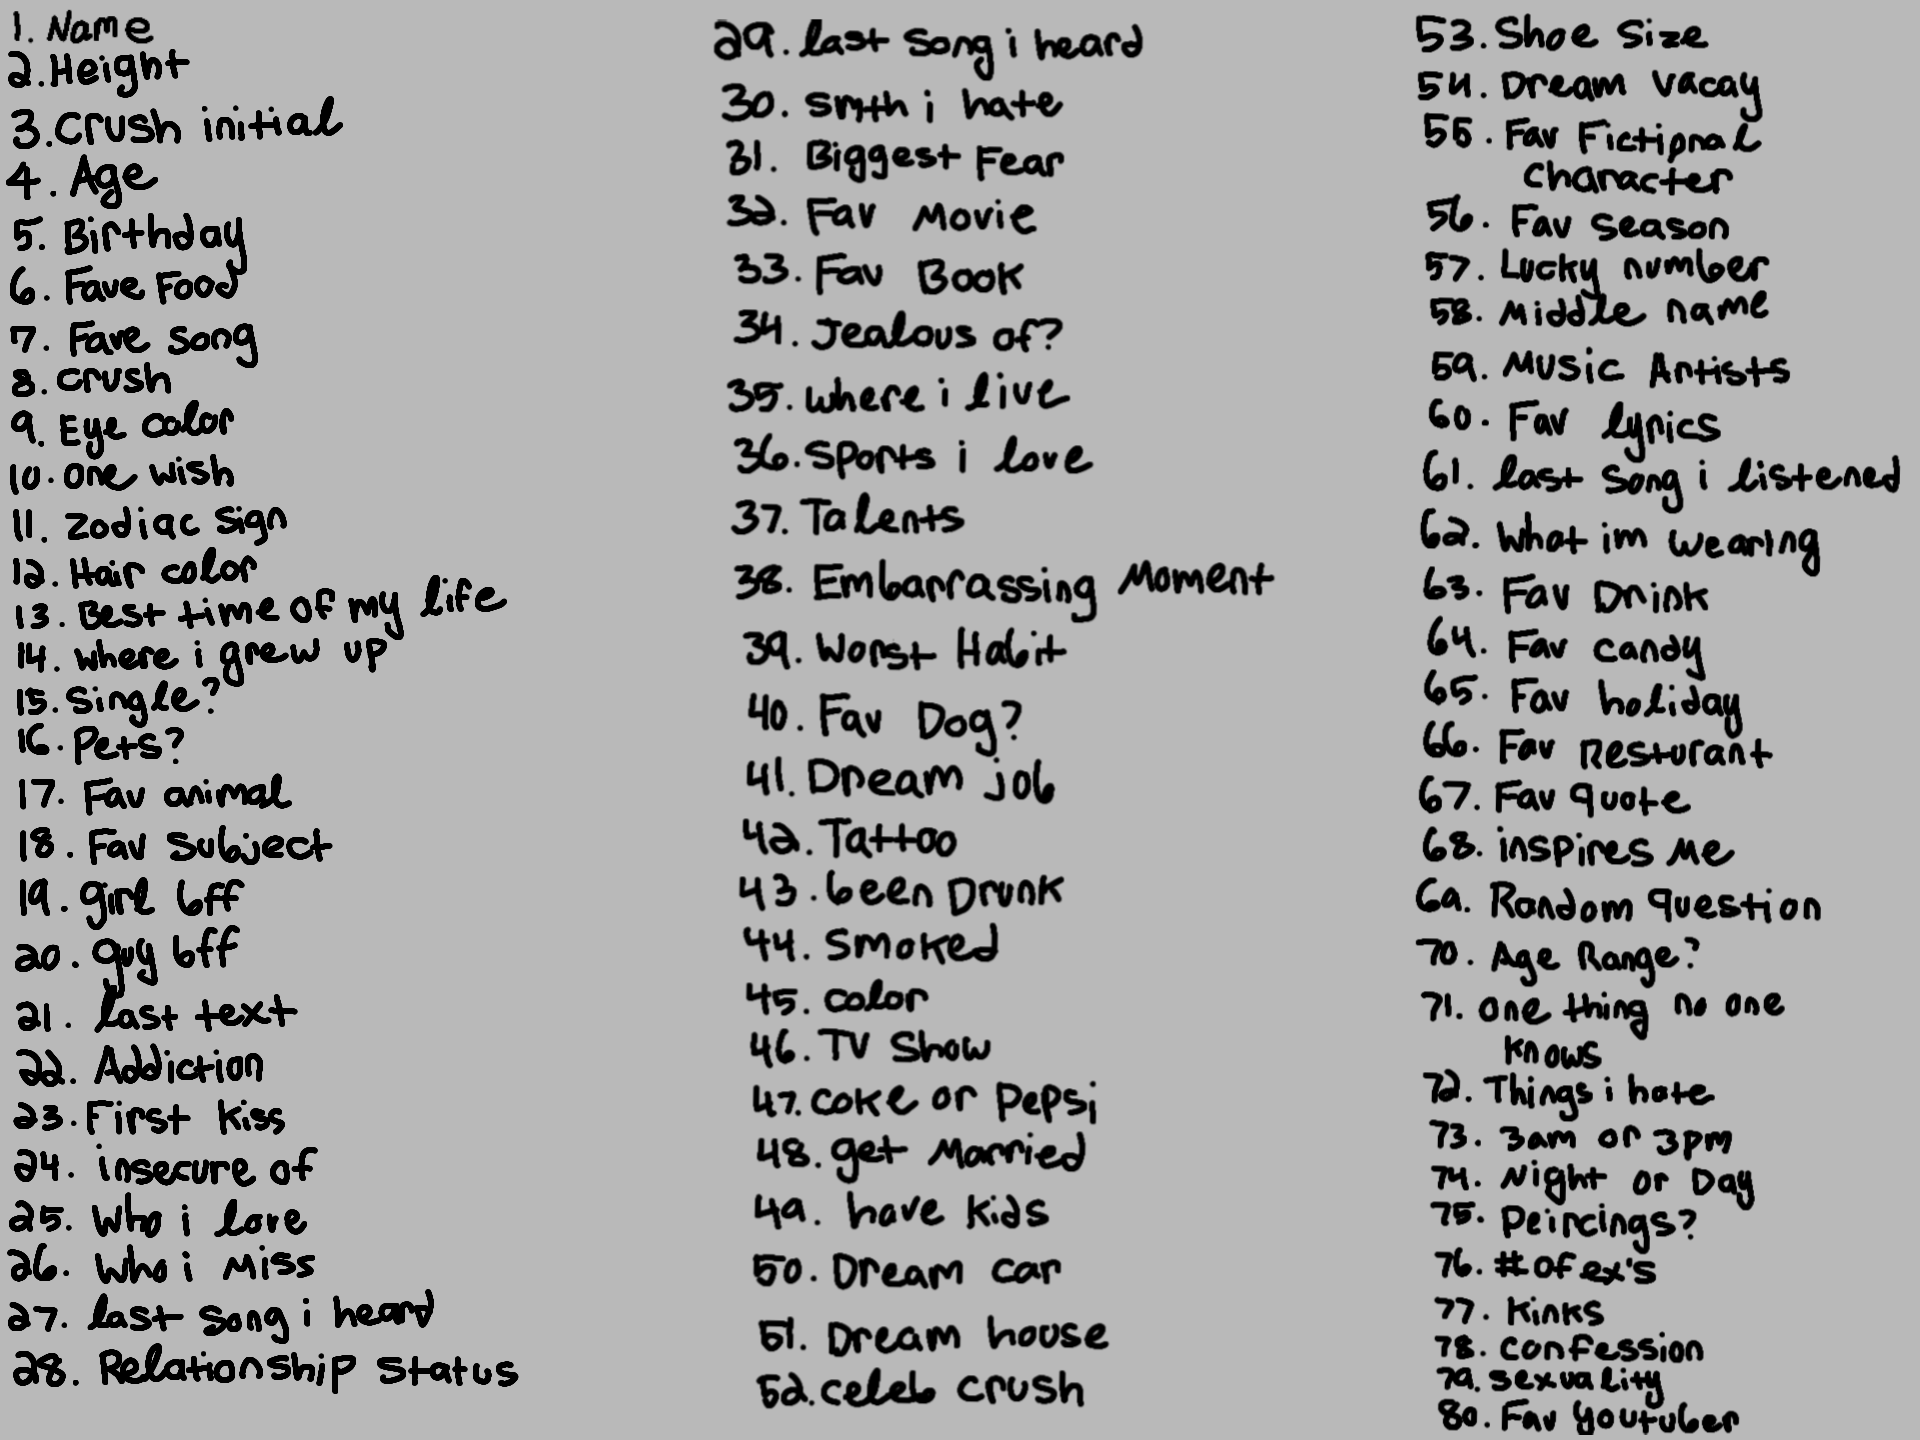 1. Name
2. Height
3. Crush initial
4. Age
5. Birthday
6. Fave Food
7. Fave song
8. crush
9. Eye color
10. one wish
11. Zodiac sign
12. Hair color
13. Best time of my life
14. where i grew up
15. Single?
16. Pets?
17. Fav animal
18. Fav subject
19. girl bff
20. guy bff
21. last text
22. Addiction
23. First kiss
24. insecure of
25. Who i love
26. Who i Miss
27. last song i heard
28. Relationship status
29. last song i heard
30. smth i hate
31. Biggest Fear
32. Fav Movie
33. Fav Book
34. Jealous of?
35. where i live
36. Sports i love
37. Talents
38. Embarrassing Moment
39. Worst Habit
40. Fav Dog?
41. Dream job
42. Tattoo
43. been Drunk
44. Smoked
45. color
46. TV Show
47. coke or Pepsi
48. get Married
49. have kids
50. Dream car
51. Dream house
52. celeb crush
53. Shoe Size
54. Dream vacay
55. Fav Fictional
character
56. Fav season
57. Lucky number
58. Middle name
59. Music Artists
60. Fav lyrics
61. last song i listened
62. What im wearing
63. Fav Drink
64. Fav candy
65. Fav holiday
66. Fav Resturant
67. Fav quote
68. inspires Me
69. Random question
70. Age Range?
71. one thing no one
knows
72. Things i hate
73. 3am or 3pm
74. Night or Day
75. Peircings?
76. # of ex's
77. Kinks
78. confession
79. sexuality
80. Fav youtuber